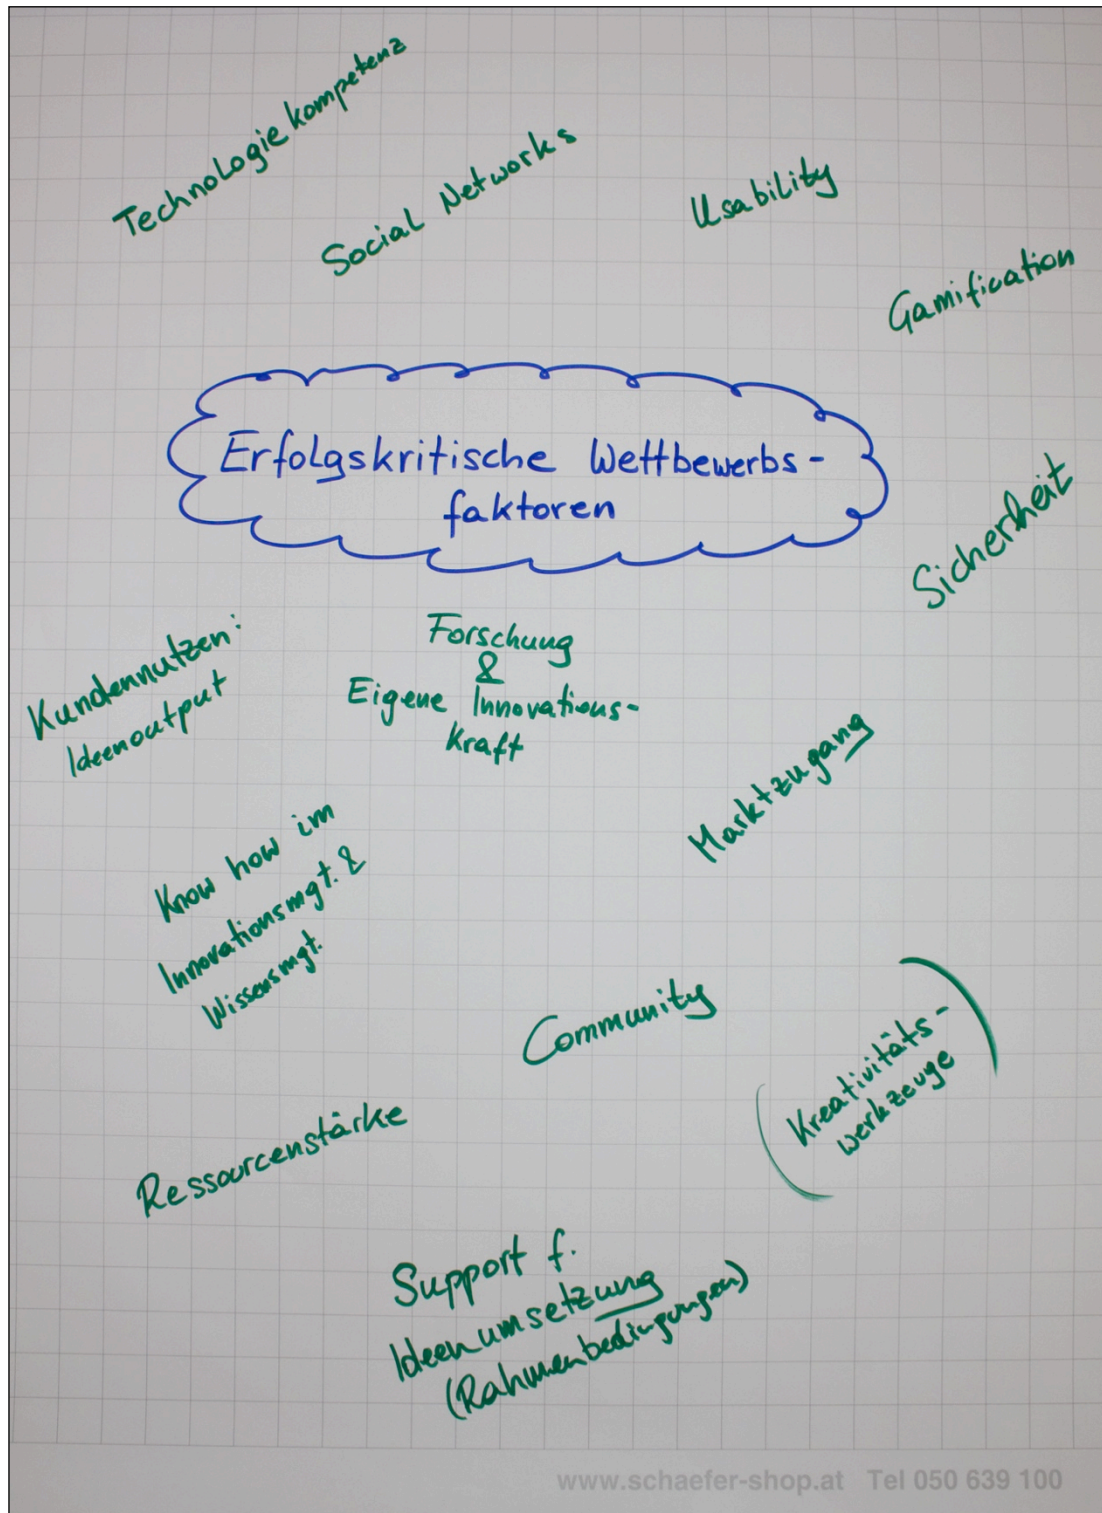 Technologiekompetenz
Social Networks
Usability
Gamification
Erfolgskritische Wettbewerbs-
faktoren
Sicherheit
Kundennutzen:
Ideenoutput
Forschung
&
Eigene Innovations-
kraft
Marktzugang
Know how im
Innovationsmgt. &
Wissensmgt.
Community
(Kreativitäts-
werkzeuge)
Ressourcenstärke
Support f.
Ideenumsetzung
(Rahmenbedingungen)
www.schaefer-shop.at Tel 050 639 100